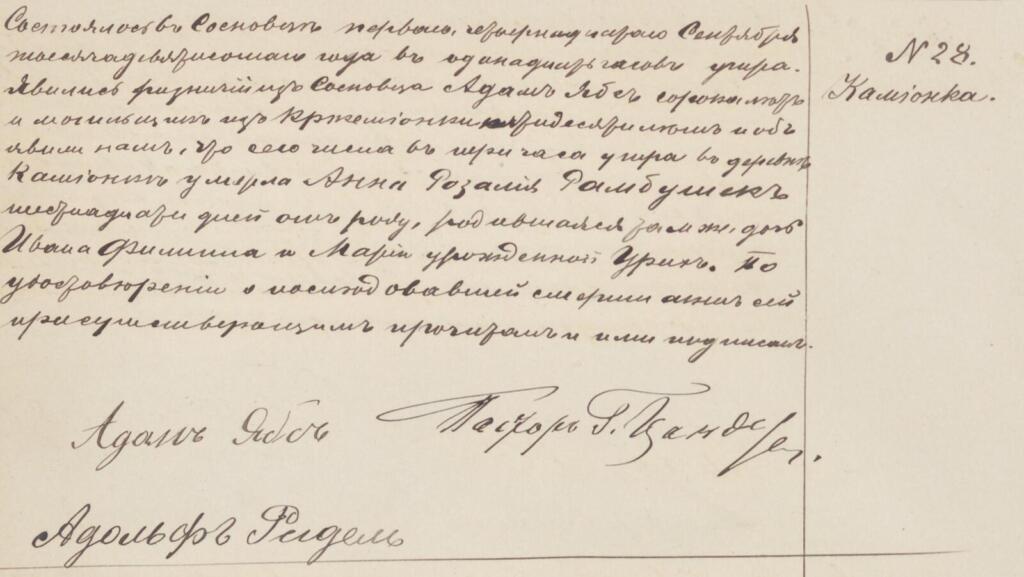 Состоялось въ Сосновцѣ перваго, четырнадцатаго Сентября
тысяча девятисотаго года въ одинадцать часовъ утра.
Явились ризничій изъ Сосновца Адамъ Ябсъ сорока лѣтъ
и могильщикъ изъ Кржеміонки пятидесяти лѣтъ и объ
явили намъ, что сего числа въ три часа утра въ деревнѣ
Каміонкѣ умерла Анна Розалія Рамбушекъ
шестнадцати дней отъ роду, родившаяся тамже, дочь
Ивана Филиппа и Маріи урожденной Урихъ. По
удостовѣреніи о послѣдовавшей смерти актъ сей
присутствующимъ прочитанъ и ими подписанъ.
N 28.
Каміонка.
Адамъ Ябсъ
Пасторъ Г. Цандеръ.
Адольфъ Ридель